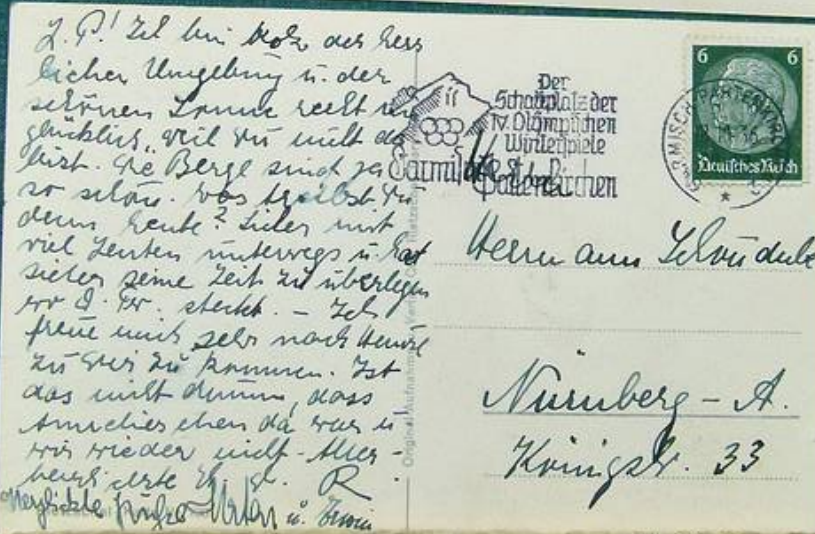 L. P.! Ich bin trotz der herr
lichen Umgebung u. der
schönen Sonne recht un
glücklich, weil Du nicht da
bist. Die Berge sind ja
so schön. Was treibst Du
denn heute? Sicher mit
viel Leuten unterwegs u. hast
sicher keine Zeit zu überlegen
wo steckt. – Ich
freue mich sehr nach Hause
zu Dir zu kommen. Ist
das nicht dumm, dass
Annelies eben da war u.
wir wieder nicht. Aller-
herzlichste R.
Herzlichste Grüße u. Erwin
Der
Schauplatz der
IV. Olympischen
Winterspiele
Garmisch
Partenkirchen
6 6
Deutsches Reich
GARMISCH-PARTENKIRCHEN
Herrn
Nürnberg - A.
Königstr. 33
Original-Aufnahme